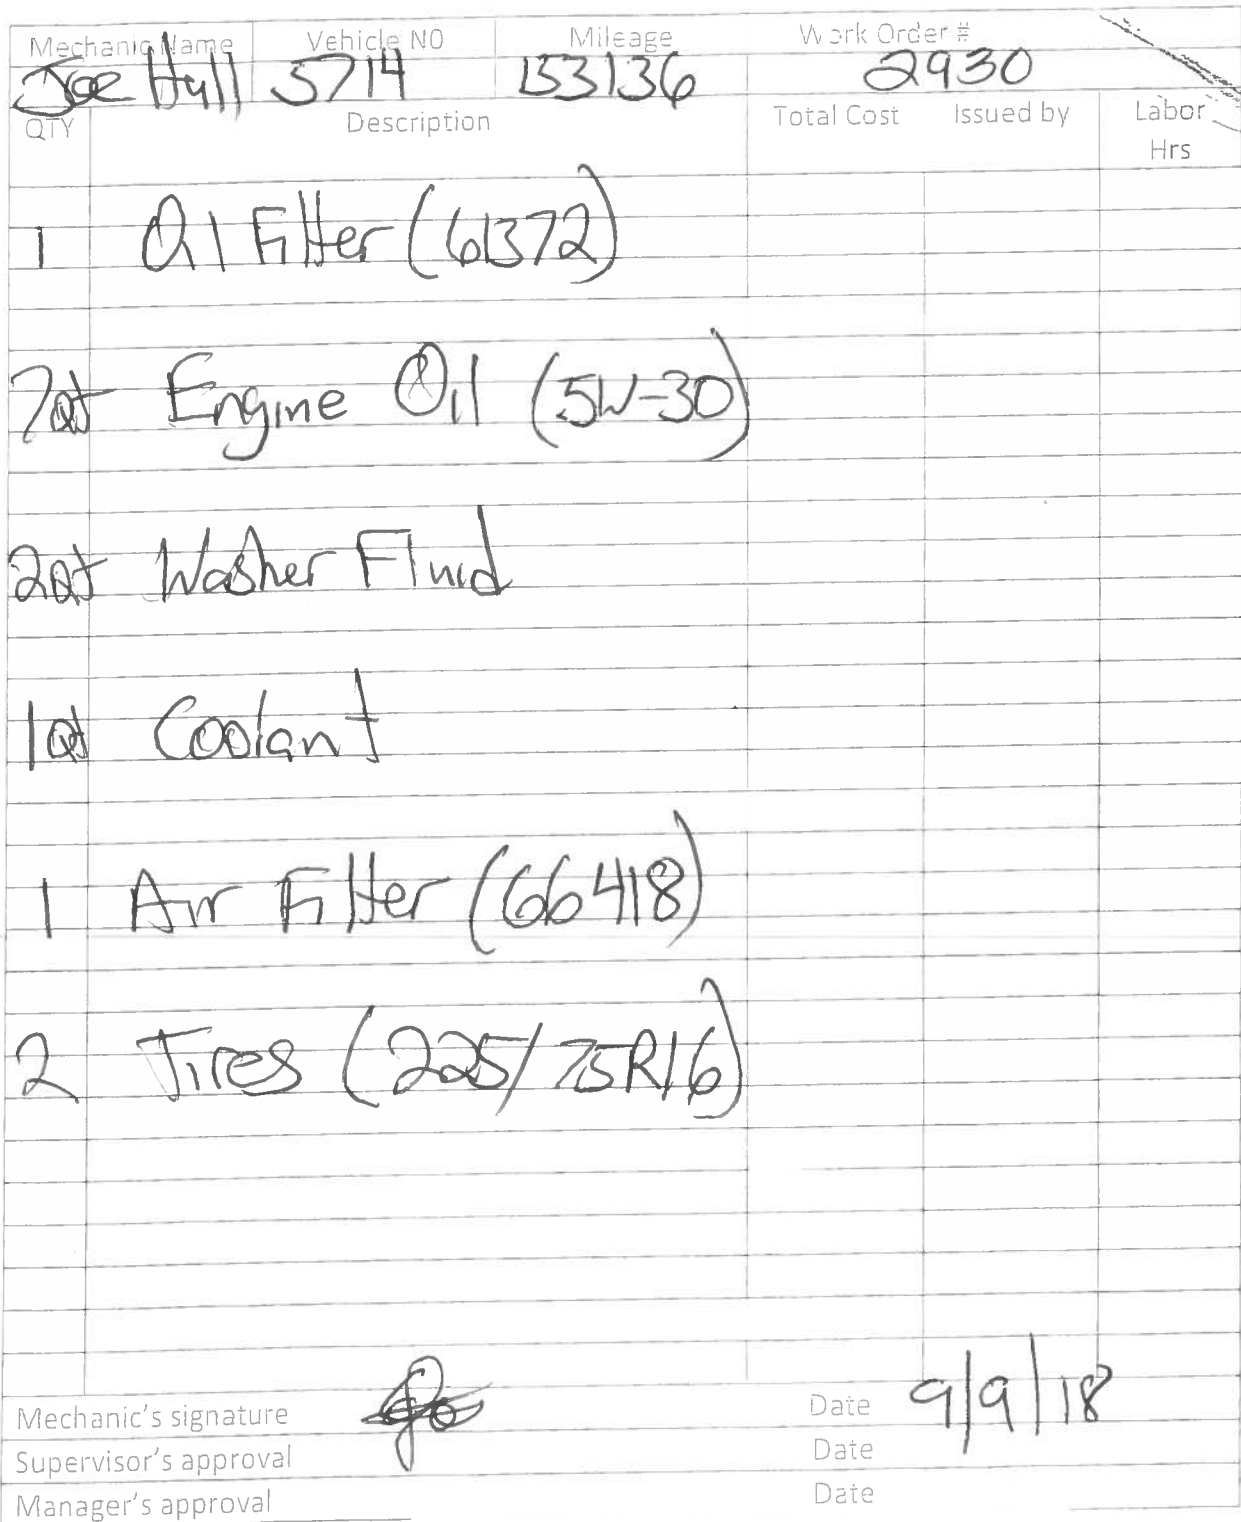 Mechanic Name Vehicle NO Mileage Work Order #
Joe Hall 5714 153136 2930
QTY Description Total Cost Issued by Labor Hrs
1 Oil Filter (61372)
7qt Engine Oil (5W-30)
2qt Washer Fluid
1qt Coolant
1 Air Filter (66418)
2 Tires (225/75R16)
Mechanic's signature Date 9/9/18
Supervisor's approval Date
Manager's approval Date